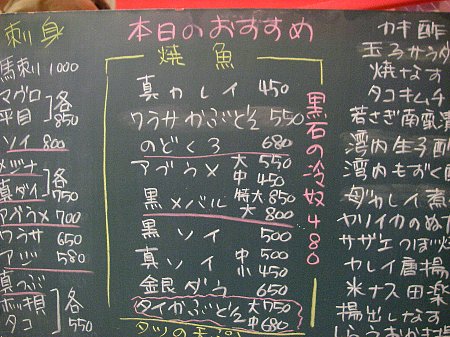 本日のおすすめ
刺身
馬刺 1000
マグロ
平目
各850
ソイ 800
メバナ
真ダイ
各750
アブラメ 700
ワラサ 650
アジ 580
真つぶ
ホッキ貝
タコ
各550
焼魚
真カレイ 450
ワラサかぶと½ 550
のどくろ 680
アブラメ 大550
中450
黒メバル 特大850
大800
黒ソイ 500
真ソイ 中500
小450
銀ダラ 650
タイかぶと½ 大750
中680
タツの天ぷら
黒石の冷奴480
カキ酢
玉子サラダ
焼なす
タコキムチ
若さぎ南蛮漬
湾内生子酢
湾内もずく酢
子持カレイ煮
ヤリイカのぬた
サザエつぼ焼
カレイ唐揚
米ナス田楽
揚出しなす
しらうおかき揚